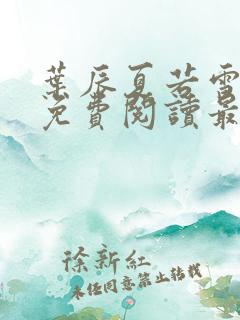 葉辰夏若雪
免費閱讀最
徐新紅
未經同意禁止轉載